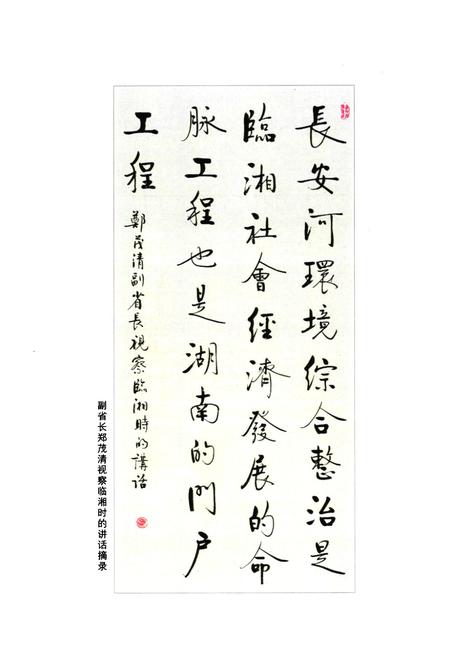 長安河環境綜合整治是
臨湘社會經濟發展的命
脉工程也是湖南的門户
工程
鄭茂清副省長視察臨湘時的講话
副省长郑茂清视察临湘时的讲话摘录